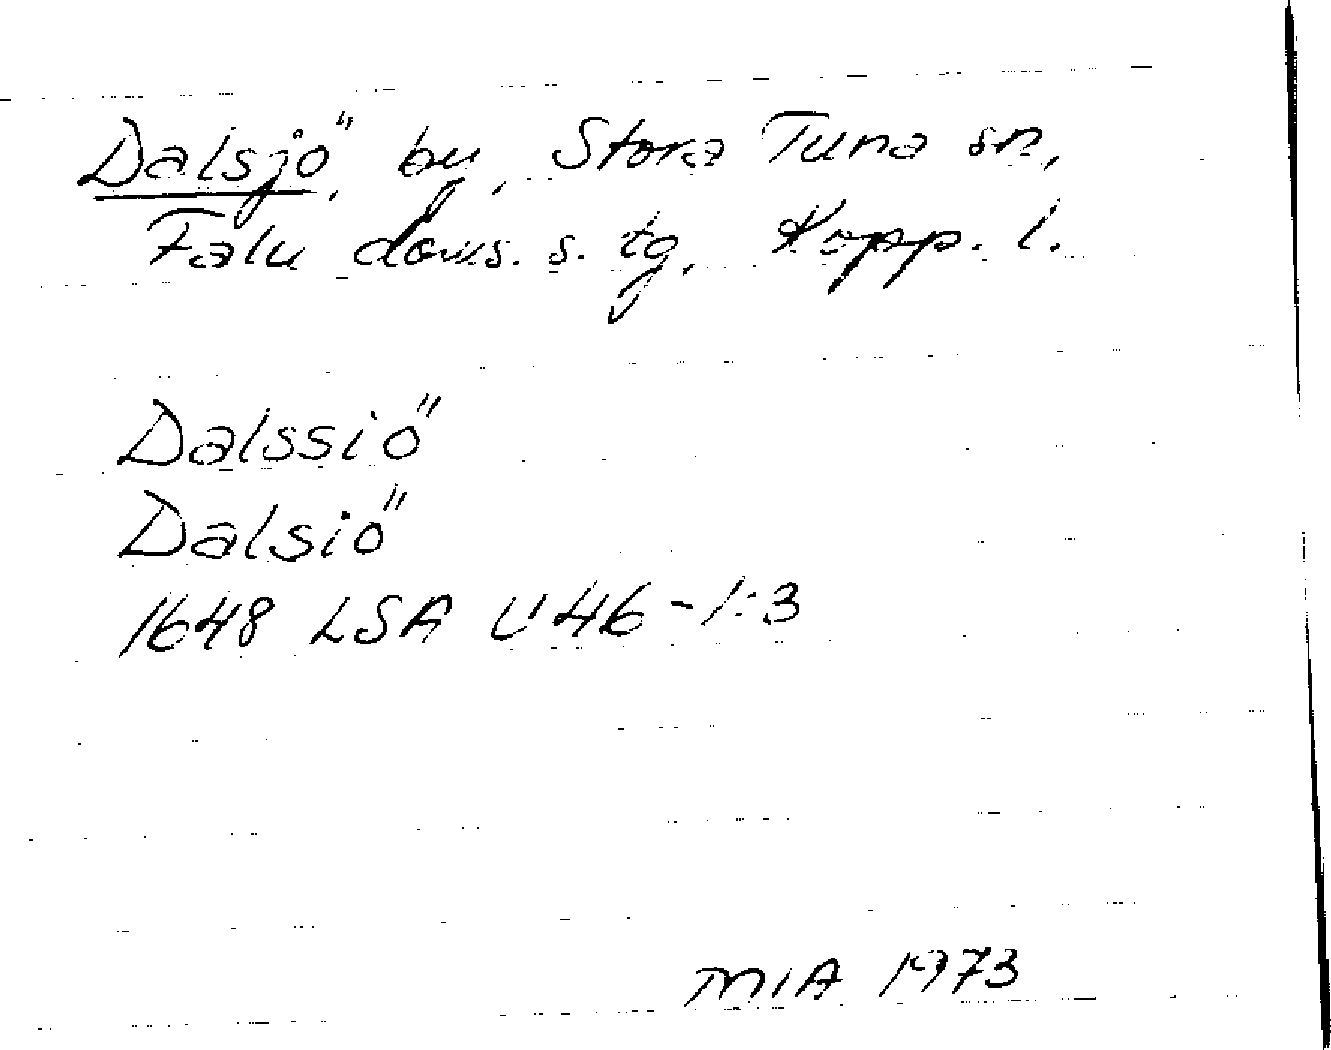 Dalsjö, by, Stora Tuna sn,
Falu doms. s. tg, Kopp. l.
Dalssiö
Dalsiö
1648 LSA U46-1:3
MIA 1973